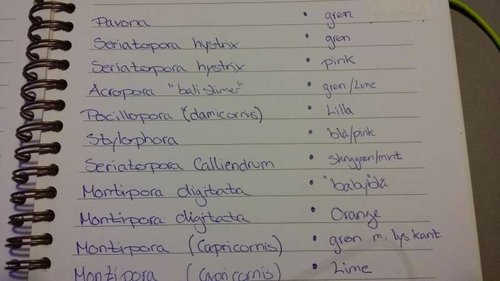 Pavona • grøn
Seriatopora hystrix • grøn
Seriatorpora hystrix • pink
Acropora "bali slimer" • grøn/Lime
Pocillopora (damicornis) • Lilla
Stylophora • blå/pink
Seriatorpora Calliendrum • skriggrøn/mint
Montipora digitata • "baby"blå
Montipora digitata • Orange
Montipora (Capricornis) • grøn m. lys kant
Montipora (Capricornis) • Lime